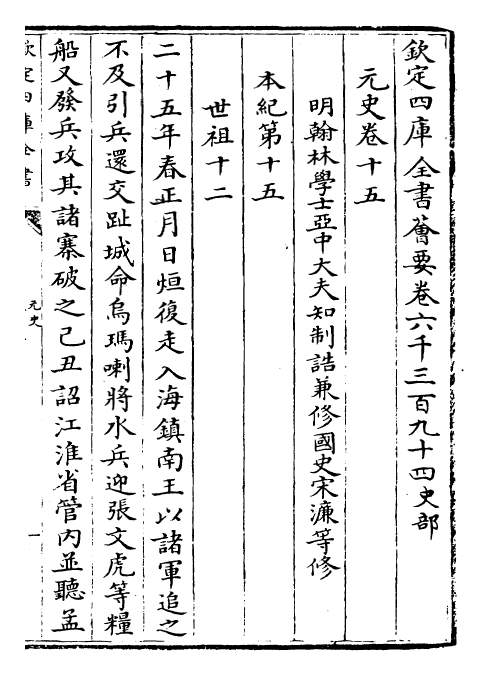 欽定四庫全書薈要卷六千三百九十四史部
元史卷十五
明翰林學士亞中大夫知制誥兼修國史宋濂等修
本紀第十五
世祖十二
二十五年春正月日烜復走入海鎮南王以諸軍追之
不及引兵還交趾城命烏瑪喇將水兵迎張文虎等糧
船又發兵攻其諸寨破之己丑詔江淮省管內並聽孟
欽定四庫全書
元史
一